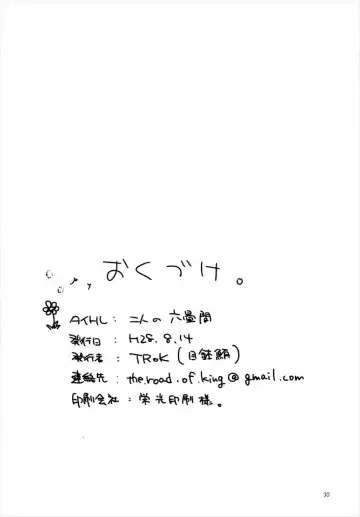 おくづけ。
タイトル : 二人の六畳間
発行日 : H28.8.14
発行者 : TRoK (目鉢鯛)
連絡先 : the.road.of.king@gmail.com
印刷会社 : 栄光印刷様。
30